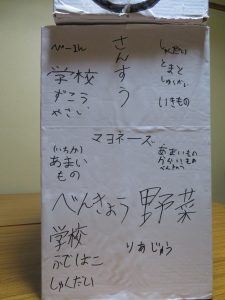 べーまん
さんすう
しゅくだい
とまと
しゅくだい
いきもの
学校
ずこう
やさい
マヨネーズ
(いちか)
あまい
もの
あまいもの
からいもの
べんきょう
べんきょう
野菜
学校
ふでばこ
しゅくだい
りあじゅう